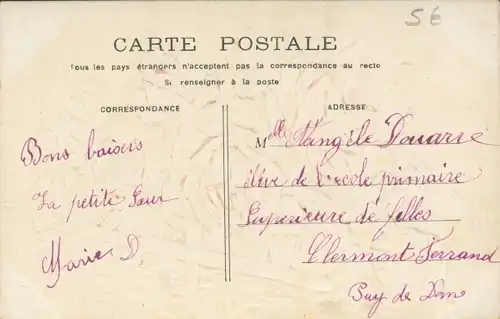 56
CARTE POSTALE
Tous les pays étrangers n'acceptent pas la correspondance au recto
Se renseigner à la poste
CORRESPONDANCE
ADRESSE
Bons baisers
Ta petite Sœur
Marie D.
Mlle Angèle Douarre
élève de l'école primaire
Supérieure de filles
Clermont Ferrand
Puy de Dome